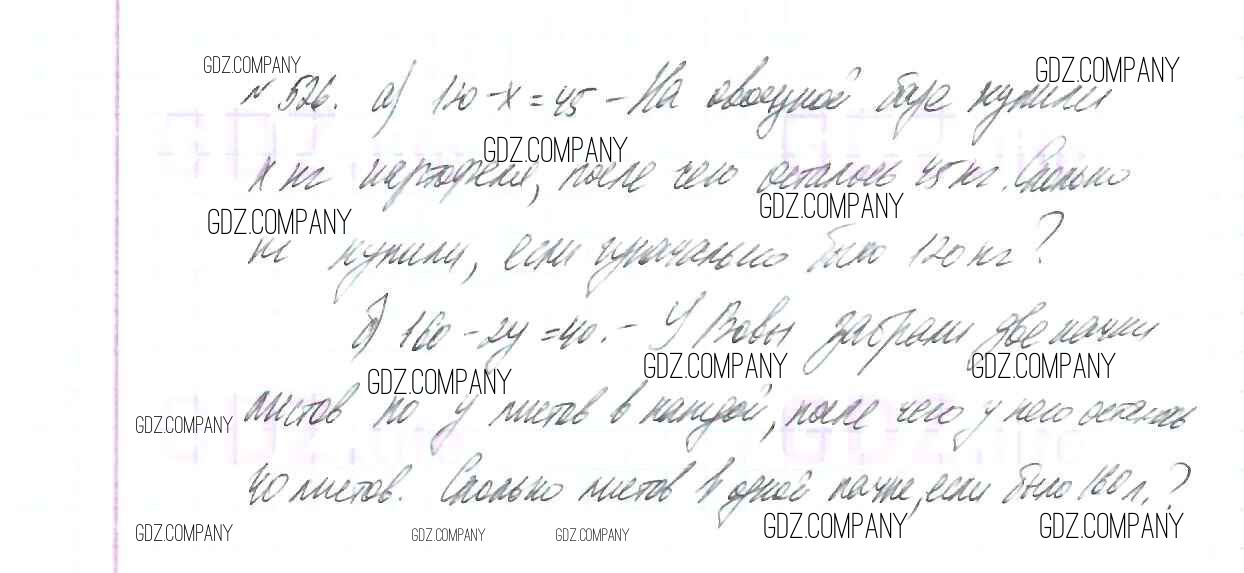 GDZ.COMPANY
№ 526. а) 120 - x = 45 - На овощной базе купили
GDZ.COMPANY
GDZ.COMPANY
x кг картофеля, после чего осталось 45 кг. Сколько
GDZ.COMPANY
GDZ.COMPANY
кг купили, если изначально было 120 кг?
б) 160 - 2y = 40. - У Вовы забрали две пачки
GDZ.COMPANY
GDZ.COMPANY
GDZ.COMPANY
листов по y листов в каждой, после чего у него осталось
GDZ.COMPANY
40 листов. Сколько листов в одной пачке, если было 160 л.?
GDZ.COMPANY
GDZ.COMPANY
GDZ.COMPANY
GDZ.COMPANY
GDZ.COMPANY